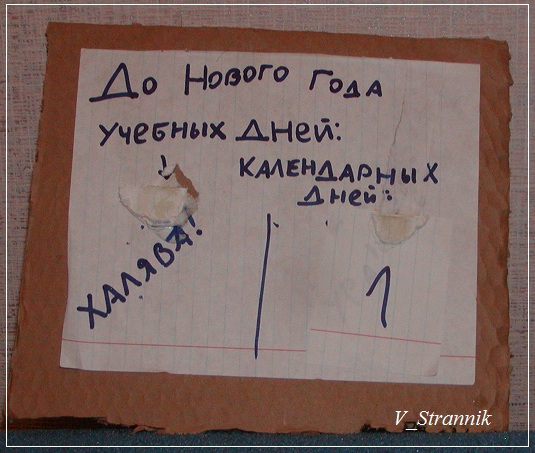 До Нового Года
учебных дней:
календарных
дней:
ХАЛЯВА!
1
V_Strannik